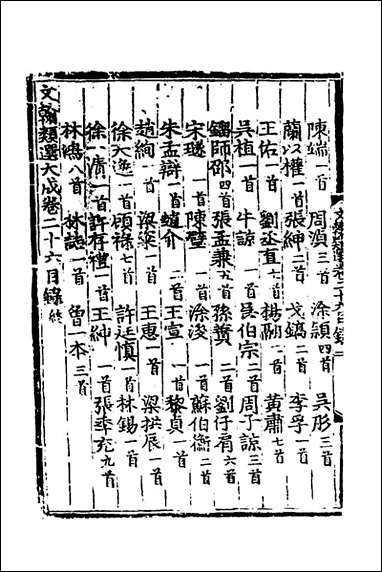 陳端一首 周湞三首 涂潁四首 吳彤三首
蘭以權一首 張紳二首 戈鎬二首 李孚一首
王佑一首 劉丞直七首 楊翮二首 黃肅七首
吳植一首 牛諒一首 吳伯宗二首 周子諒三首
鎦師邵四首 張孟兼九首 孫蕡二首 劉仔肩六首
宋璲一首 陳璧一首 涂浚一首 蘇伯衡二首
朱孟辯一首 趙介二首 王宣一首 黎貞一首
趙絢一首 梁槃一首 王惠一首 梁拱辰一首
徐大遂一首 頋祿七首 許廷慎一首 林錫一首
徐一清一首 許存禮一首 王紳一首 張季充九首
林鴻八首 林誌一首 曾一本三首
文翰類選大成卷二十六目錄終